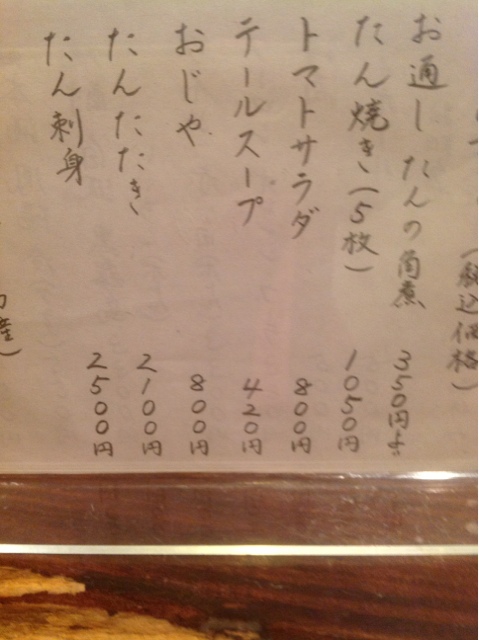 (税込価格)
お通し たんの角煮 350円より
たん焼き(5枚) 1050円
トマトサラダ 800円
テールスープ 420円
おじや 800円
たんたたき 2100円
たん刺身 2500円
産)